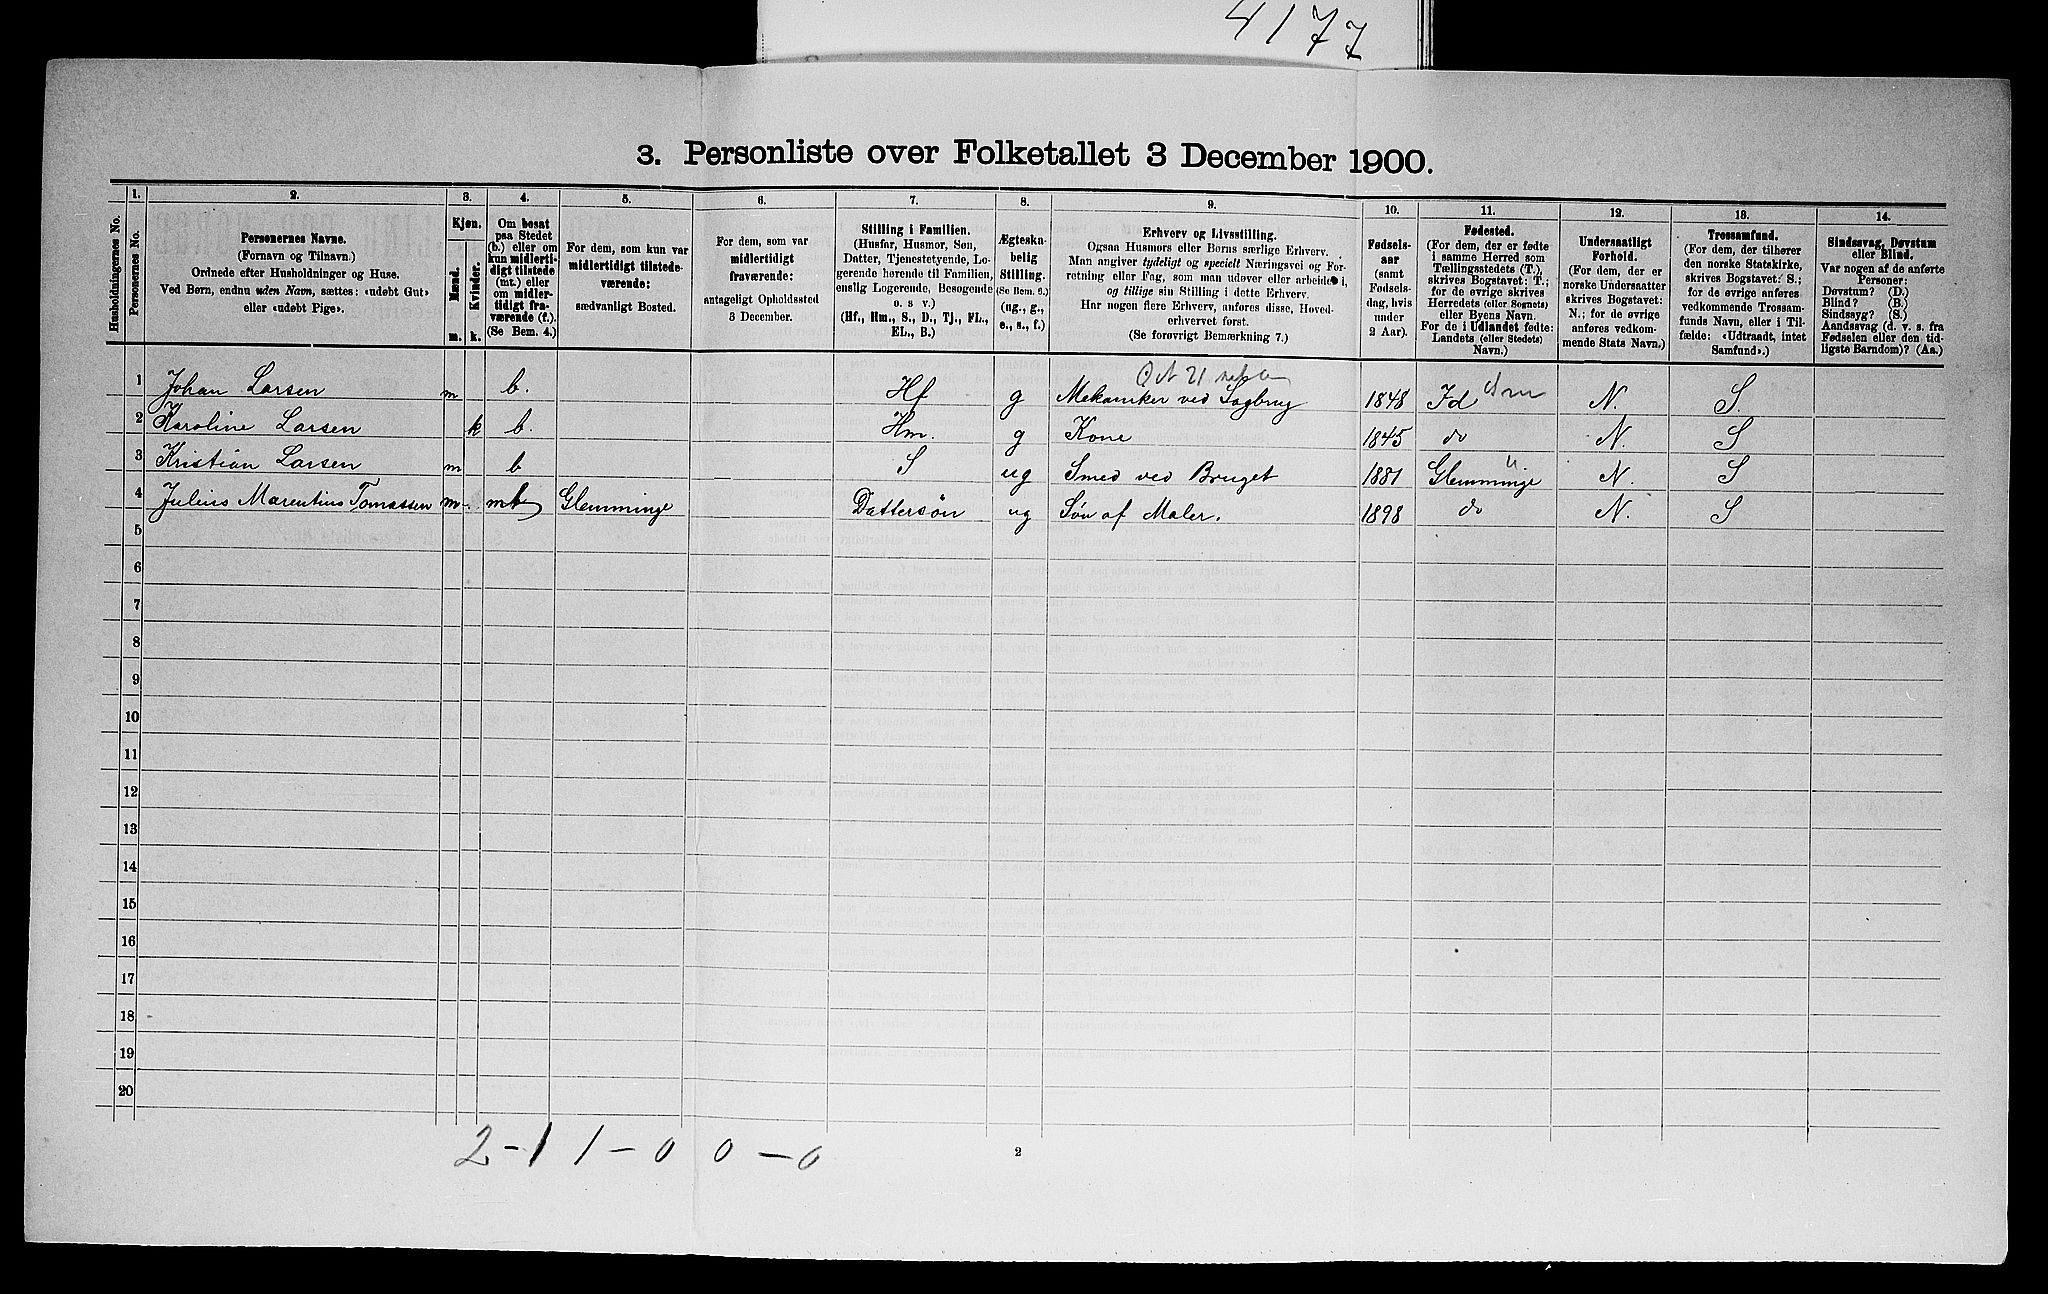 4177
3. Personliste over Folketallet 3 December 1900.
Husholdningernes No.
1.
Personernes No.
2.
Personernes Navne.
(Fornavn og Tilnavn.)
Ordnede efter Husholdninger og Huse.
Ved Børn, endnu uden Navn, sættes: «udøbt Gut»
eller «udøbt Pige».
3.
Kjøn.
Mænd.
Kvinder.
m. k.
4.
Om bosat
paa Stedet
(b.) eller om
kun midlerti-
digt tilstede
(mt.) eller
om midler-
tidigt fra-
værende (f.).
(Se Bem. 4.)
5.
For dem, som kun var
midlertidigt tilstede-
værende:
sædvanligt Bosted.
6.
For dem, som var
midlertidigt
fraværende:
antageligt Opholdssted
3 December.
7.
Stilling i Familien.
(Husfar, Husmor, Søn,
Datter, Tjenestetyende, Lo-
gerende hørende til Familien,
enslig Logerende, Besøgende
o. s v.)
(Hf., Hm., S., D., Tj., FL.,
EL., B.)
8.
Ægteska-
belig
Stilling.
(Se Bem. 6.)
(ug., g.,
e., s., f.)
9.
Erhverv og Livsstilling.
Ogsaa Husmors eller Børns særlige Erhverv.
Man angiver tydeligt og specielt Næringsvei og For-
retning eller Fag, som man udøver eller arbeider i,
og tillige sin Stilling i dette Erhverv.
Har nogen flere Erhverv, anføres disse, Hoved-
erhvervet først.
(Se forøvrigt Bemærkning 7.)
10.
Fødsels-
aar
(samt
Fødsels-
dag, hvis
under
2 Aar).
11.
Fødested.
(For dem, der er fødte
i samme Herred som
Tællingsstedets (T.),
skrives Bogstavet: T.;
for de øvrige skrives
Herredets (eller Sognets)
eller Byens Navn.
For de i Udlandet fødte:
Landets (eller Stedets)
Navn.)
12.
Undersaatligt
Forhold.
(For dem, der er
norske Undersaatter
skrives Bogstavet:
N.; for de øvrige
anføres vedkom-
mende Stats Navn.)
13.
Trossamfund.
(For dem, der tilhører
den norske Statskirke,
skrives Bogstavet: S.;
for de øvrige anføres
vedkommende Trossam-
funds Navn, eller i Til-
fælde: «Udtraadt, intet
Samfund».)
14.
Sindssvag, Døvstum
eller Blind.
Var nogen af de anførte
Personer:
Døvstum? (D.)
Blind? (B.)
Sindssyg? (S.)
Aandssvag (d. v. s. fra
Fødselen eller den tid-
ligste Barndom)? (Aa.)
1 Johan Larsen m b. Hf g Mekaniker ved Sagbrug 1848 Id N. S.
2 Karoline Larsen k b. Hm. g Kone 1845 do N. S
3 Kristian Larsen m b S ug Smed ved Bruget 1881 Glemminge N. S
4 Julius Marentius Tomassen m mt Glemminge Dattersøn ug Søn af Maler. 1898 do N. S
5
6
7
8
9
10
11
12
13
14
15
16
17
18
19
20
2-1 1-0 0-0
2